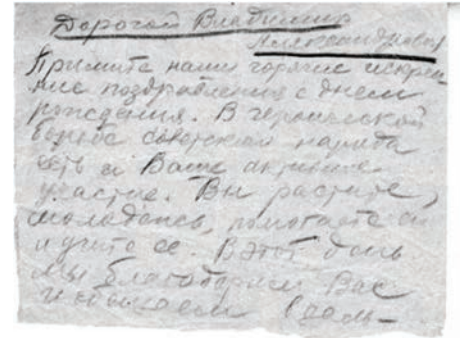 Дорогой Владимир
Александрович
Примите наши горячие искрен-
ние поздравления с днем
рождения. В героической
борьбе советского народа
есть и Ваше активное
участие. Вы растите,
молодежь, помогаете ей
и учите ее. В этот день
мы благодарим Вас
и